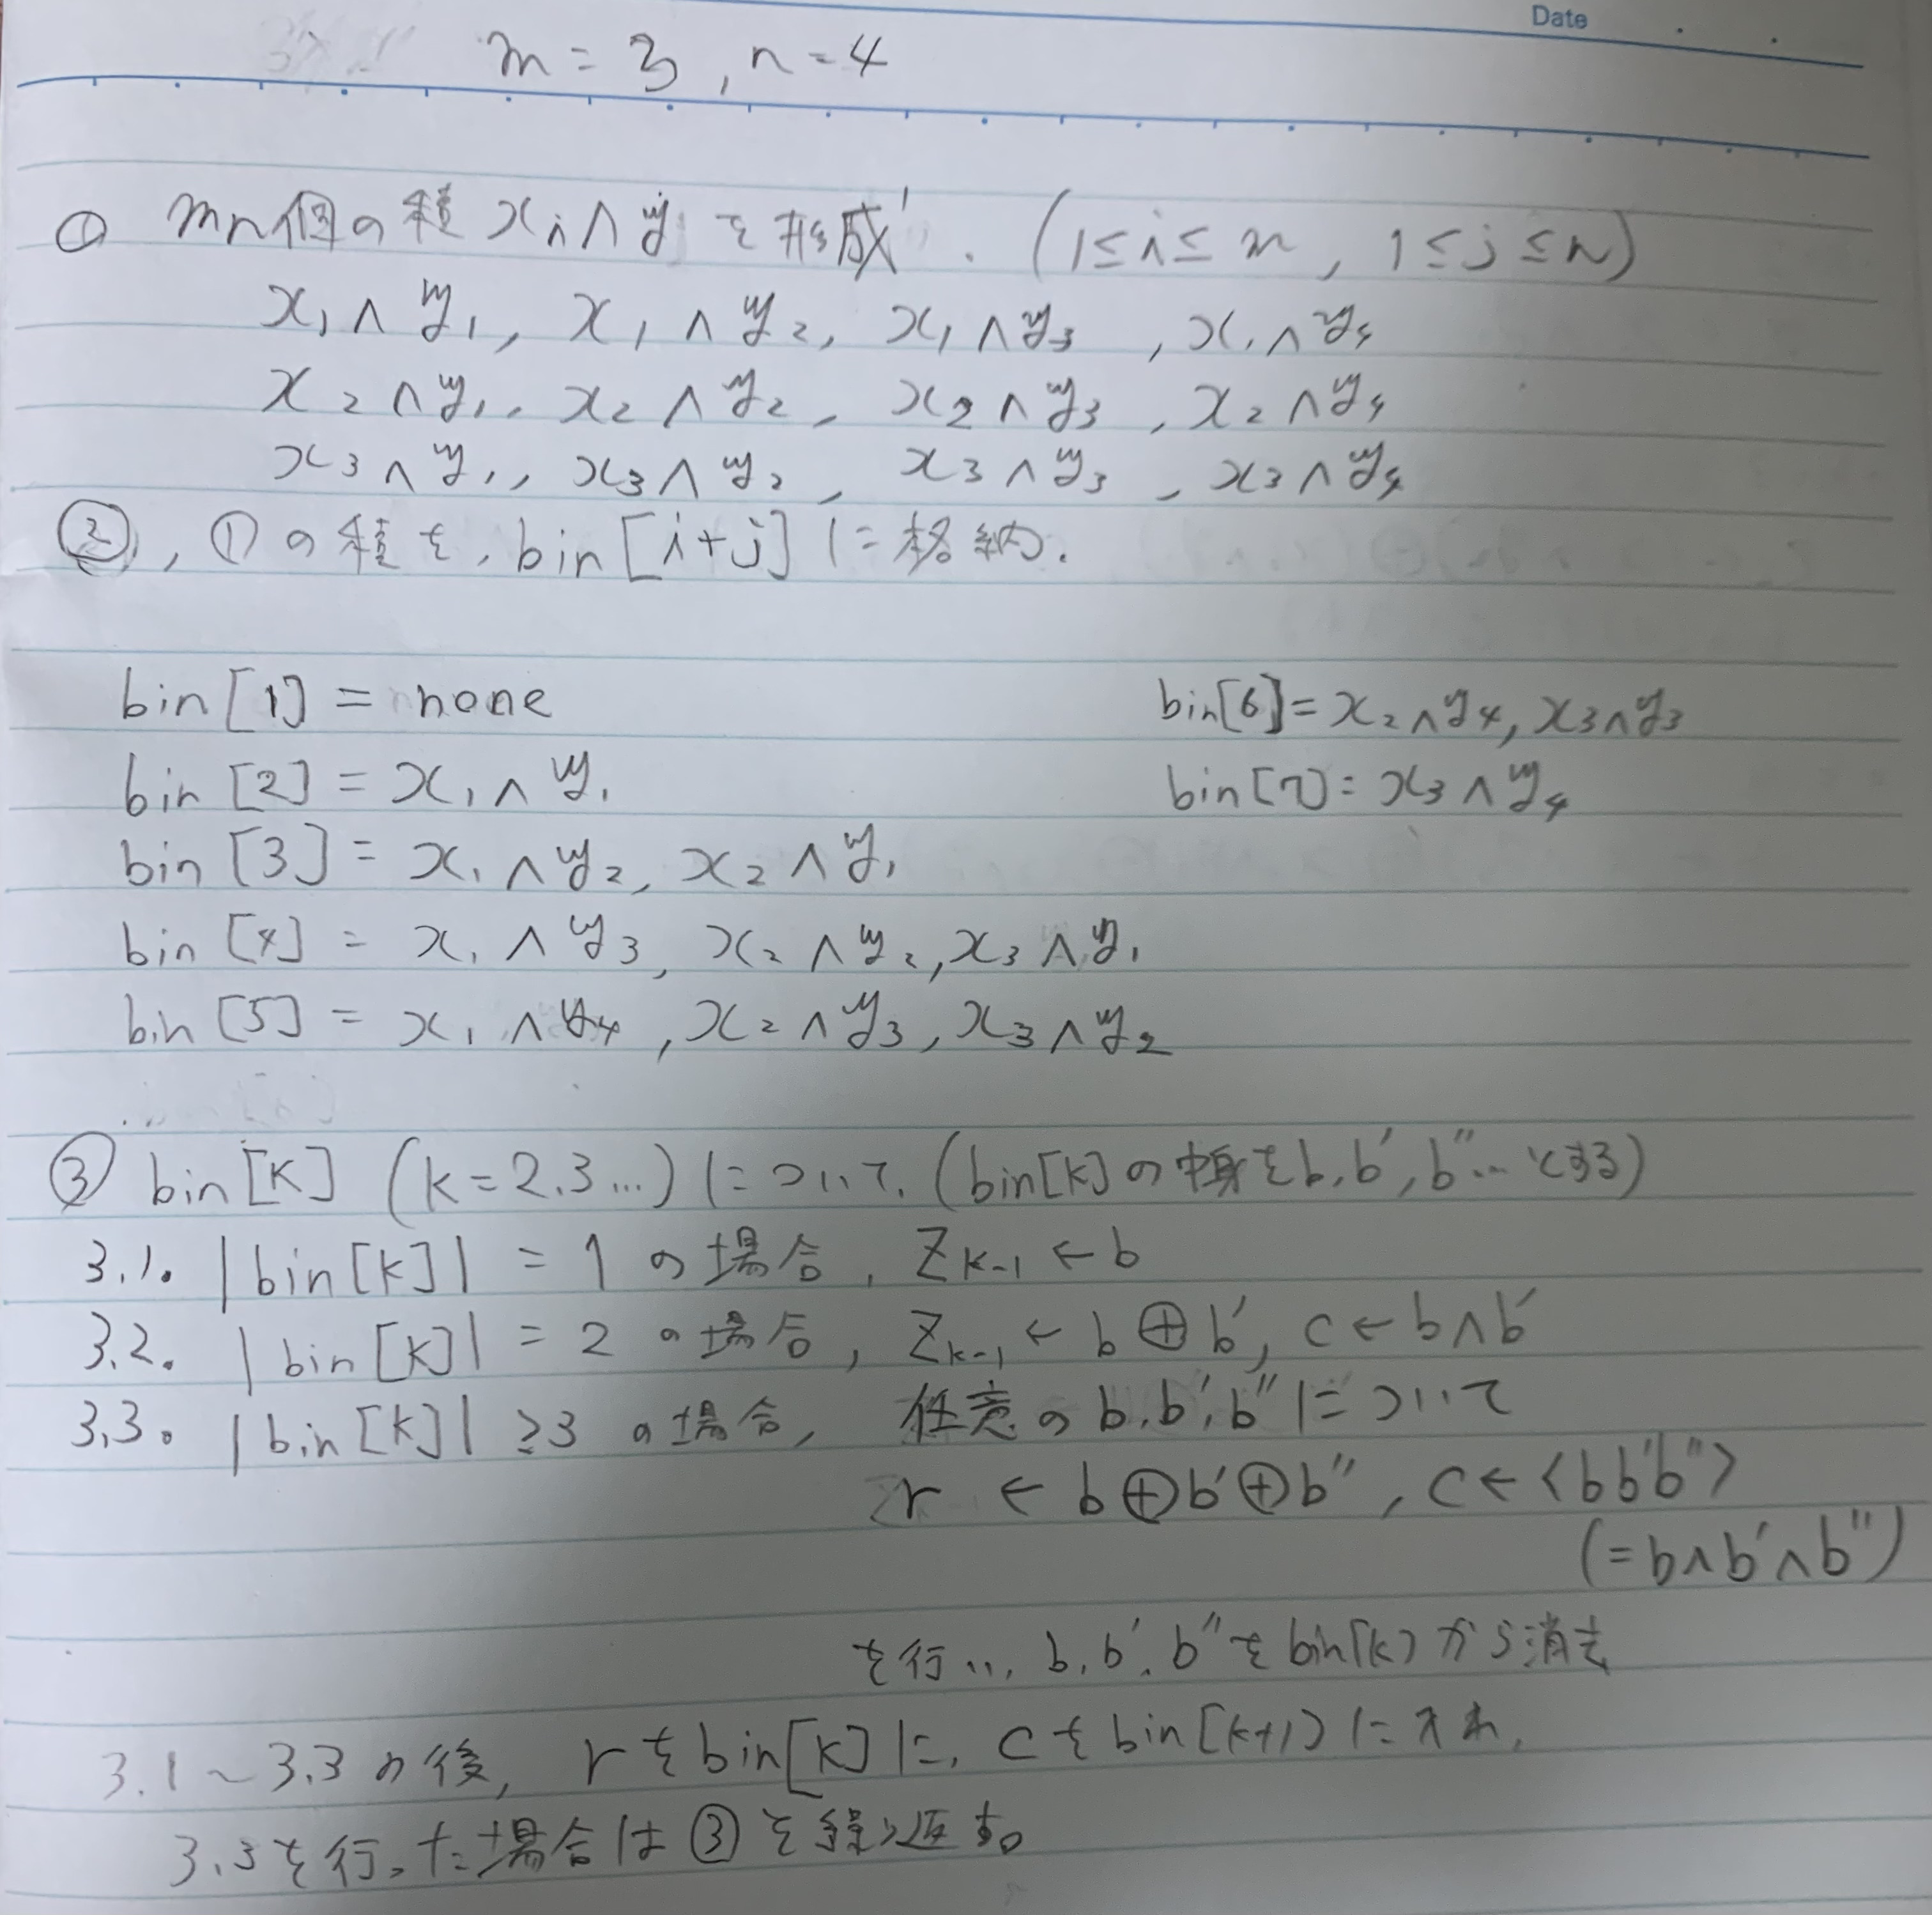 Date
m = 3, n = 4
① mn個の積 xi∧yj を形成. (1≤i≤m, 1≤j≤n)
x1∧y1, x1∧y2, x1∧y3, x1∧y4
x2∧y1, x2∧y2, x2∧y3, x2∧y4
x3∧y1, x3∧y2, x3∧y3, x3∧y4
②, ①の積を, bin[i+j]に格納.
bin[1] = none
bin[2] = x1∧y1
bin[3] = x1∧y2, x2∧y1
bin[4] = x1∧y3, x2∧y2, x3∧y1
bin[5] = x1∧y4, x2∧y3, x3∧y2
bin[6] = x2∧y4, x3∧y3
bin[7] = x3∧y4
③ bin[k] (k=2,3...)について, (bin[k]の中身をb, b', b''...とする)
3.1. |bin[k]| = 1 の場合, Zk-1 ← b
3.2. |bin[k]| = 2 の場合, Zk-1 ← b⊕b', c ← b∧b'
3.3. |bin[k]| ≥3 の場合, 任意のb, b', b''について
r ← b⊕b'⊕b'', c ← <bb'b''>
(=b∧b'∧b'')
を行い, b, b', b''をbin[k]から消去
3.1～3.3の後, rをbin[k]に, cをbin[k+1]に入れ,
3.3を行った場合は③を繰り返す。